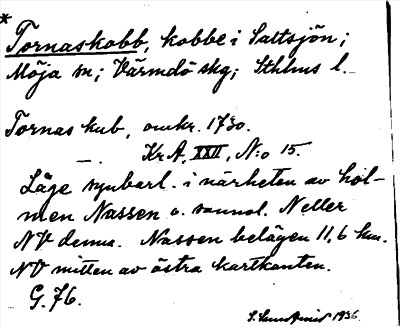 *
Tornaskobb, kobbe i Saltsjön;
Möja sn; Värmdö skg; Sthlms l.
Tornas kub, omkr. 1730.
—„— KrA, XXII, N:o 15.
Läge synbarl. i närheten av hol-
men Nassen o. sannol. N eller
NV denna. Nassen belägen 11,6 km.
NV mitten av östra kartkanten.
G. 76.
1936.